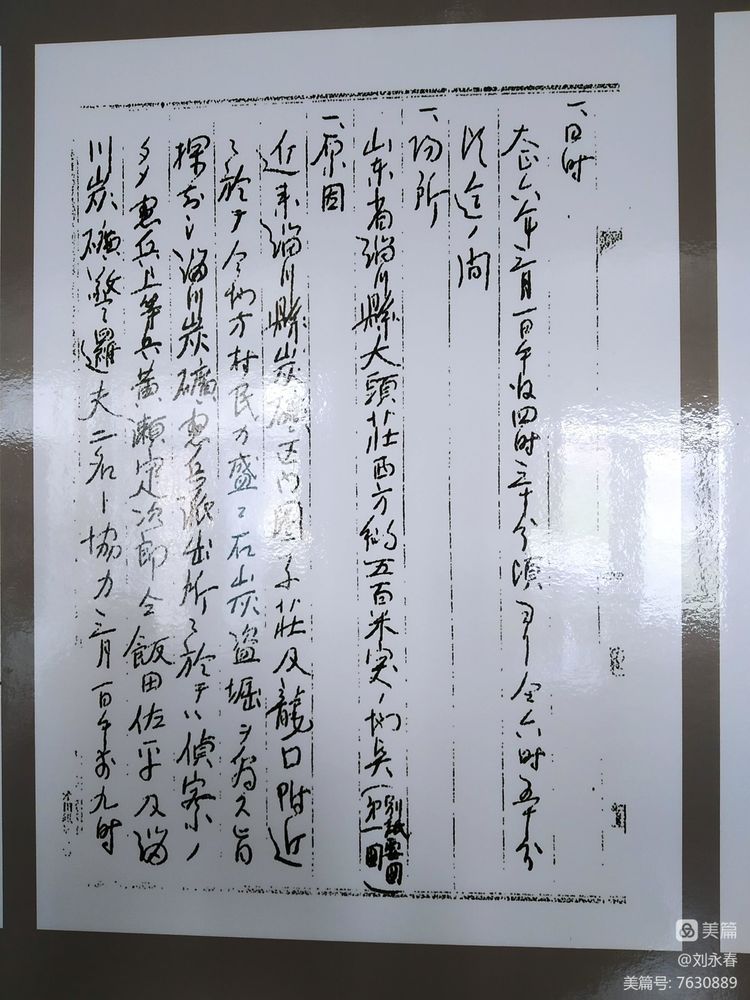 一、日時
大正六年三月一日午後四時三十分頃ヨリ仝六時五十分
頃迄ノ間
一、場所
山東省淄川縣大頭莊西方約五百米突ノ地点(別紙要圖第一圖)
一、原因
近来淄川縣炭礦区内圈子莊及龍口附近
ニ於テ仝地方村民カ盛ニ石炭盗堀ヲ為ス旨
探知シ淄川炭礦憲兵派出所ニ於テハ偵察ノ
タメ憲兵上等兵黄瀬定次郎仝飯田佐平及淄
川炭礦巡邏夫二名ト協力三月一日午前九時
美篇
@刘永春
美篇号: 7630889